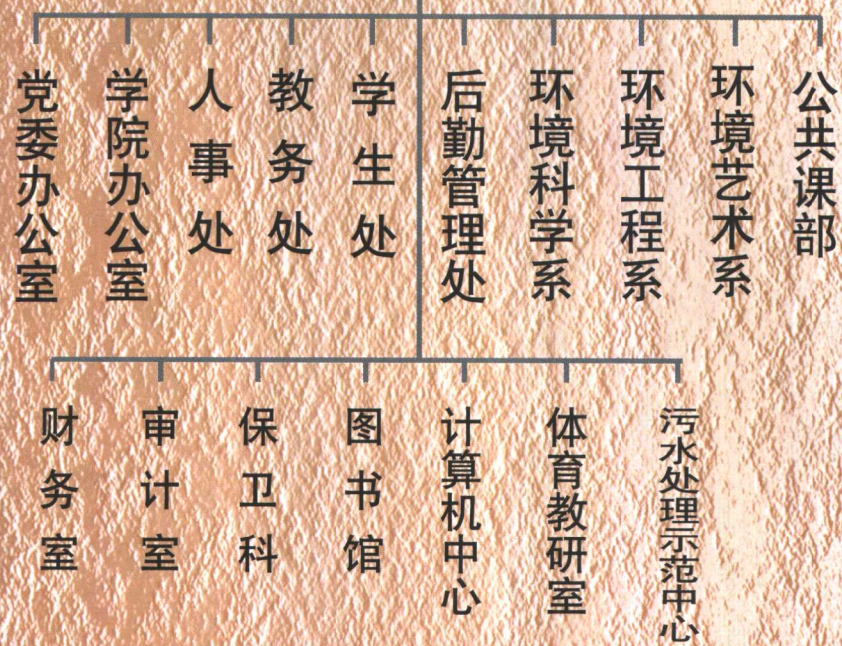 党委办公室
学院办公室
人事处
教务处
学生处
后勤管理处
环境科学系
环境工程系
环境艺术系
公共课部
财务室
审计室
保卫科
图书馆
计算机中心
体育教研室
污水处理示范中心